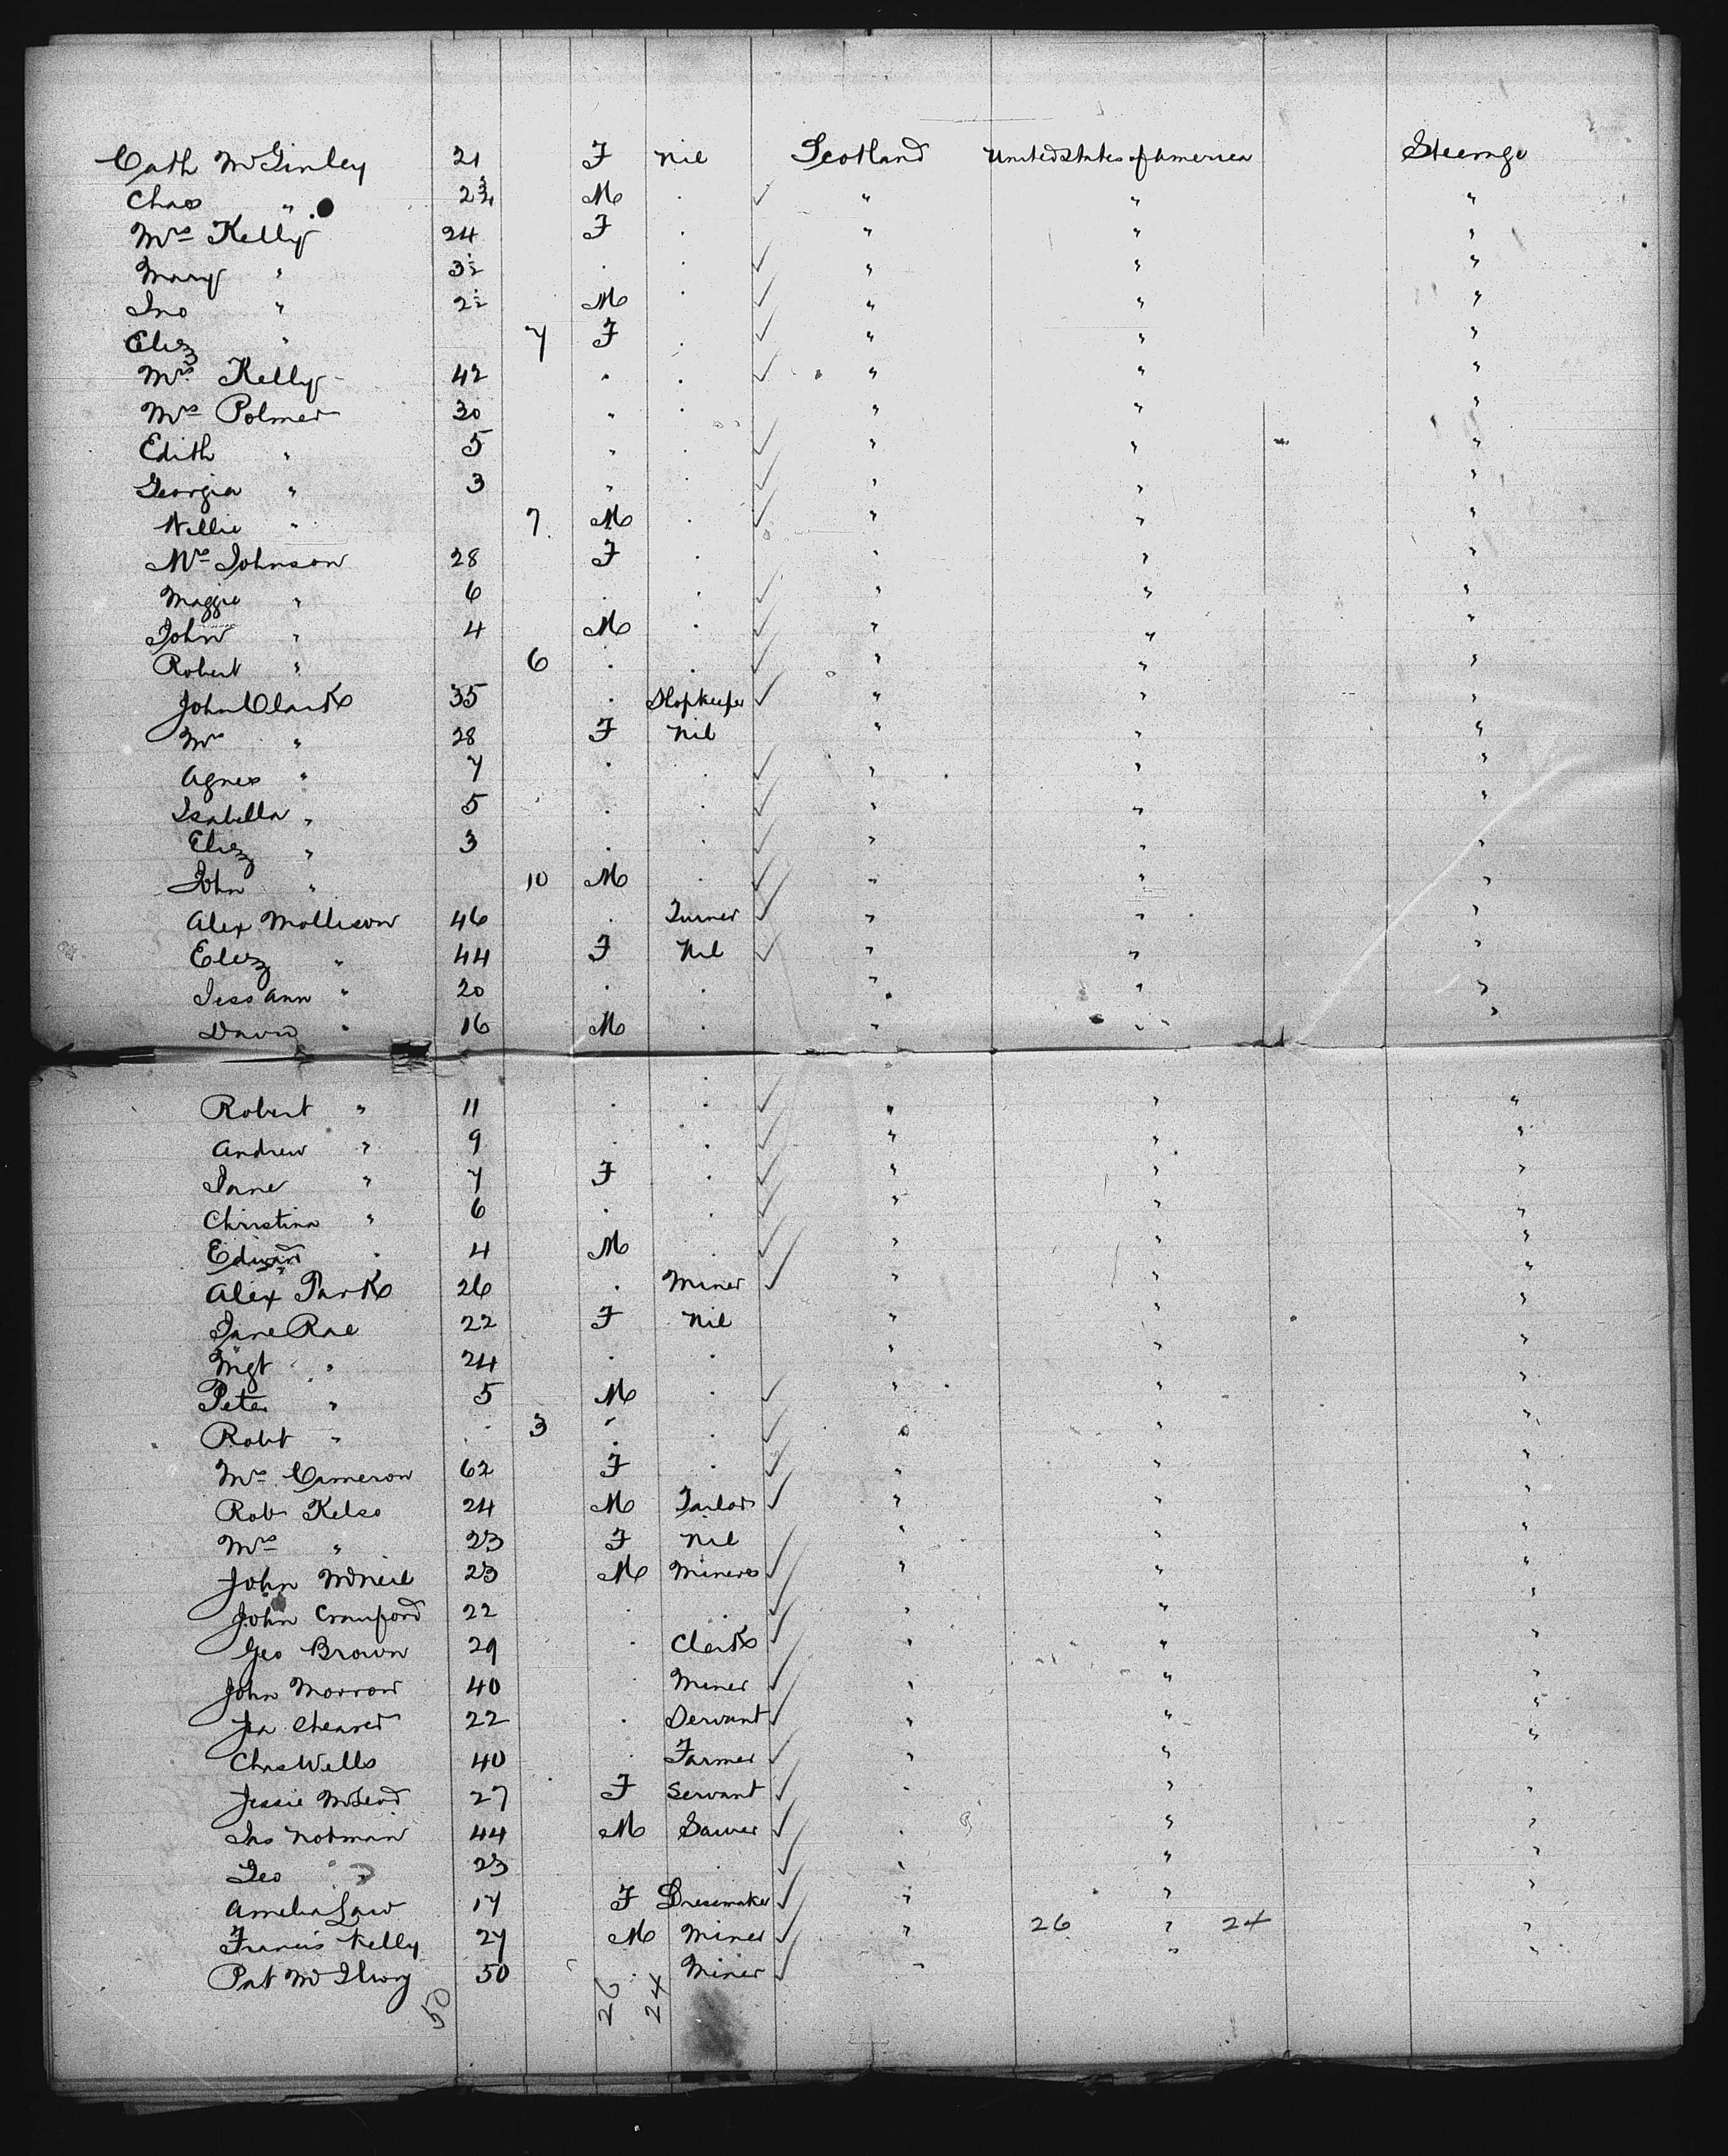 Cath McGinley 21 F Nil Scotland United States of America Steerage
Chas " 2¾ M . " " "
Mrs Kelly 24 F . " " "
Mary " 3½ . . " " "
Jno " 2½ M . " " "
Eliz " 7 F . " " "
Mrs Kelly 42 . . " " "
Mrs Polmer 30 " . " " "
Edith " 5 " . " " "
Georgia " 3 " . " " "
Nellie " 7 M . " " "
Mrs Johnson 28 F . " " "
Maggie " 6 . . " " "
John " 4 M . " " "
Robert " 6 . . " " "
John Clark 35 . Shopkeeper " " "
Mrs " 28 F Nil " " "
Agnes " 7 . . " " "
Isabella " 5 . . " " "
Eliz " 3 . . " " "
John " 10 M . " " "
Alex Mollison 46 . Turner " " "
Eliz " 44 F Nil " " "
Jess Ann " 20 . . " " "
David " 16 M . " " "
Robert " 11 . . " " "
Andrew " 9 . . " " "
Jane " 7 F . " " "
Christina " 6 . . " " "
Edward " 4 M . " " "
Alex Park 26 . Miner " " "
Jane Rae 22 F Nil " " "
Mgt " 24 . . " " "
Peter " 5 M . " " "
Robt " 3 " . " " "
Mrs Cameron 62 F . " " "
Rob Kelso 24 M Tailor " " "
Mrs " 23 F Nil " " "
John McNeil 23 M Miner " " "
John Crawford 22 . . " " "
Geo Brown 29 . Clerk " " "
John Morrow 40 . Miner " " "
22 . Servant " " "
Chas Wells 40 . Farmer " " "
Jessie McLeod 27 F Servant " " "
Jas Notman 44 M " " "
Geo " 23 . . " " "
Amelia Law 17 F Dressmaker " " "
Francis Kelly 27 M Miner " 26 " 24 "
Pat 50 . Miner " " "
50 26 24